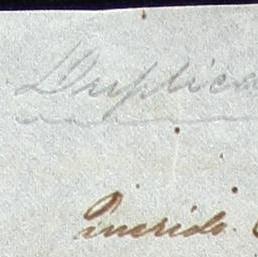 Duplica
Querido